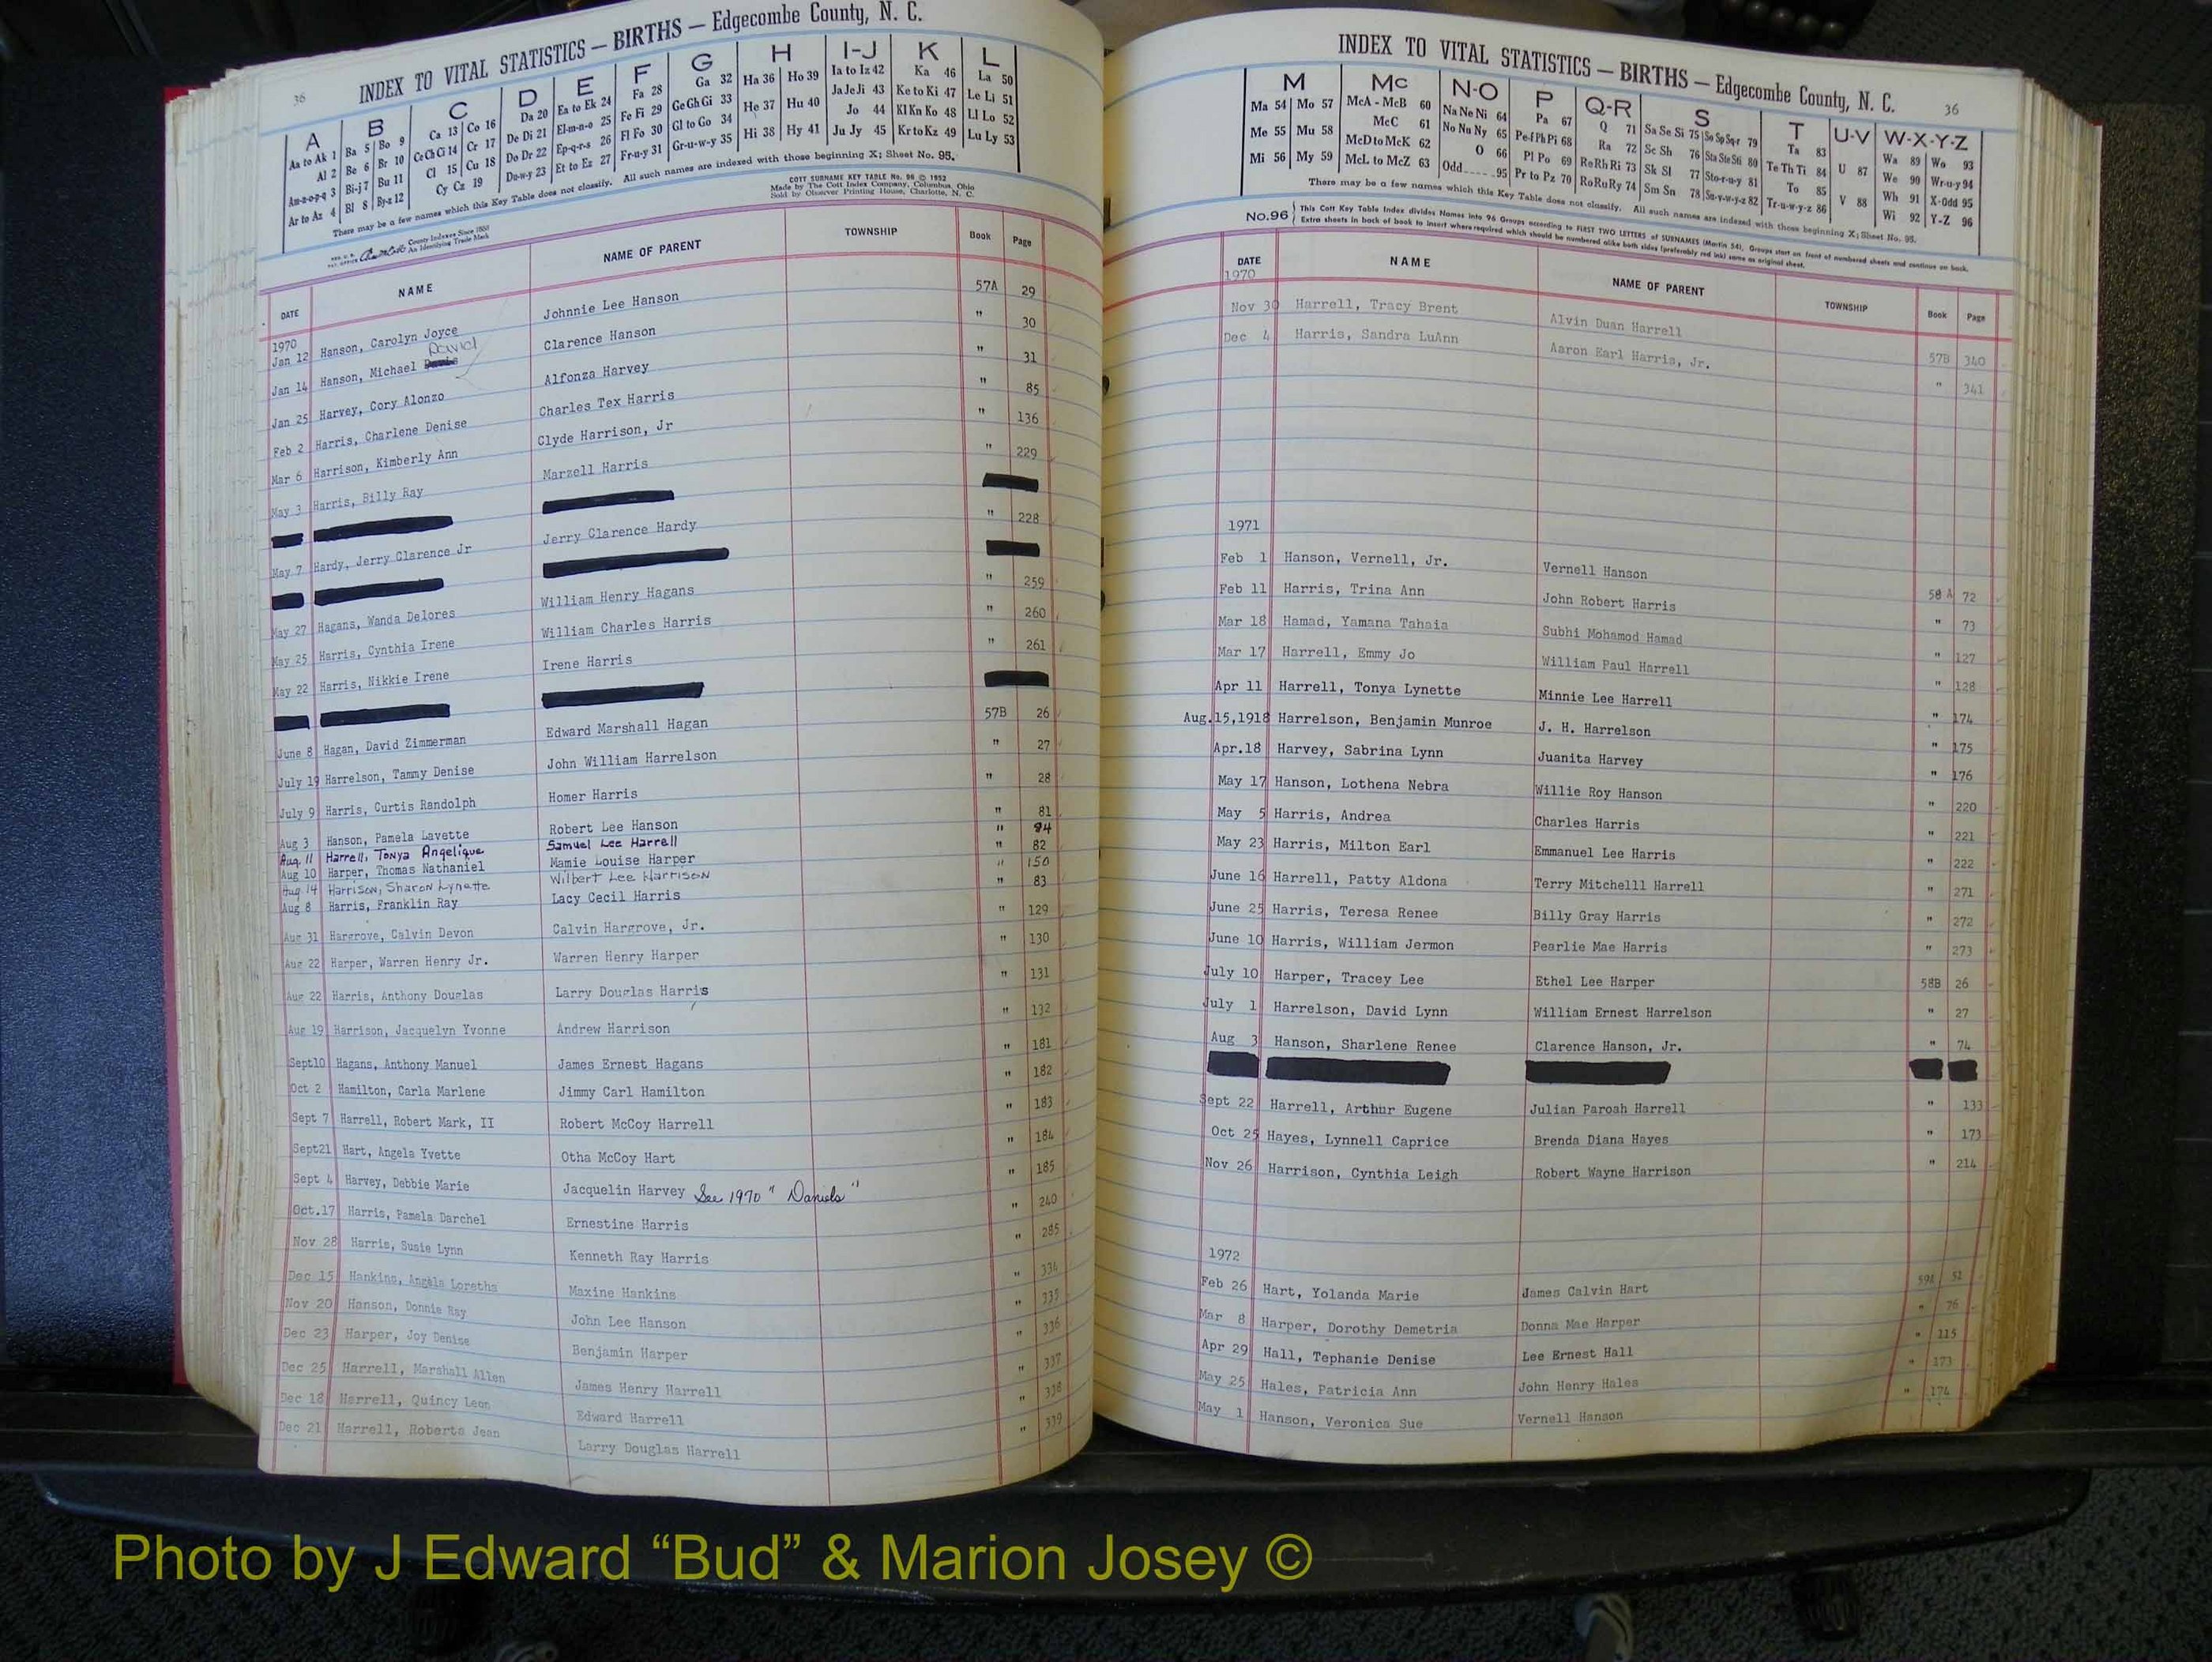 36
INDEX TO VITAL STATISTICS — BIRTHS — Edgecombe County, N. C.
A B C D E F G H I-J K L
Aa to Ak 1 Ba 5 Bo 9 Ca 13 Co 16 Da 20 Ea to Ek 24 Fa 28 Ga 32 Ha 36 Ho 39 Ia to Iz 42 Ka 46 La 50
Al 2 Be 6 Br 10 Ce Ch Ci 14 Cr 17 De Di 21 El-m-n-o 25 Fe Fi 29 Ge Gh Gi 33 He 37 Hu 40 Ja Je Ji 43 Ke to Ki 47 Le Li 51
Am-n-o-p-q 3 Bi-j 7 Bu 11 Cl 15 Cu 18 Do Dr 22 Ep-q-r-s 26 Fl Fo 30 Gl to Go 34 Hi 38 Hy 41 Jo 44 Kl Kn Ko 48 Ll Lo 52
Ar to Az 4 Bl 8 By-z 12 Cy Cz 19 Du-w-y 23 Et to Ez 27 Fr-u-y 31 Gr-u-w-y 35 Ju Jy 45 Kr to Kz 49 Lu Ly 53
There may be a few names which this Key Table does not classify. All such names are indexed with those beginning X; Sheet No. 95.
COTT SURNAME KEY TABLE No. 96 © 1952
Made by The Cott Index Company, Columbus, Ohio
Sold by Observer Printing House, Charlotte, N. C.
County Indexes Since 1888
An Identifying Trade Mark
DATE NAME NAME OF PARENT TOWNSHIP Book Page
1970
Jan 12 Hanson, Carolyn Joyce Johnnie Lee Hanson 57A 29
David
Jan 14 Hanson, Michael Clarence Hanson " 30
Jan 25 Harvey, Cory Alonzo Alfonza Harvey " 31
Feb 2 Harris, Charlene Denise Charles Tex Harris " 85
Mar 6 Harrison, Kimberly Ann Clyde Harrison, Jr " 136
May 3 Harris, Billy Ray Marzell Harris " 229
May 7 Hardy, Jerry Clarence Jr Jerry Clarence Hardy " 228
May 27 Hagans, Wanda Delores William Henry Hagans " 259
May 25 Harris, Cynthia Irene William Charles Harris " 260
May 22 Harris, Nikkie Irene Irene Harris " 261
June 8 Hagan, David Zimmerman Edward Marshall Hagan 57B 26
July 19 Harrelson, Tammy Denise John William Harrelson " 27
July 9 Harris, Curtis Randolph Homer Harris " 28
Aug 3 Hanson, Pamela Lavette Robert Lee Hanson " 81
Aug. 11 Harrell, Tonya Angelique Samuel Lee Harrell " 94
Aug 10 Harper, Thomas Nathaniel Mamie Louise Harper " 82
Aug 14 Harrison, Sharon Lynette Wilbert Lee Harrison " 150
Aug 8 Harris, Franklin Ray Lacy Cecil Harris " 83
Aug 31 Hargrove, Calvin Devon Calvin Hargrove, Jr. " 129
Aug 22 Harper, Warren Henry Jr. Warren Henry Harper " 130
Aug 22 Harris, Anthony Douglas Larry Douglas Harris " 131
Aug 19 Harrison, Jacquelyn Yvonne Andrew Harrison " 132
Sept10 Hagans, Anthony Manuel James Ernest Hagans " 181
Oct 2 Hamilton, Carla Marlene Jimmy Carl Hamilton " 182
Sept 7 Harrell, Robert Mark, II Robert McCoy Harrell " 183
Sept21 Hart, Angela Yvette Otha McCoy Hart " 184
Sept 4 Harvey, Debbie Marie Jacquelin Harvey See 1970 "Daniels" " 185
Oct.17 Harris, Pamela Darchel Ernestine Harris " 240
Nov 28 Harris, Susie Lynn Kenneth Ray Harris " 285
Dec 15 Hankins, Angela Loreths Maxine Hankins " 334
Nov 20 Hanson, Donnie Ray John Lee Hanson " 335
Dec 23 Harper, Joy Denise Benjamin Harper " 336
Dec 25 Harrell, Marshall Allen James Henry Harrell " 337
Dec 18 Harrell, Quincy Leon Edward Harrell " 338
Dec 21 Harrell, Roberta Jean Larry Douglas Harrell " 339
INDEX TO VITAL STATISTICS — BIRTHS — Edgecombe County, N. C.
36
M Mc N-O P Q-R S T U-V W-X-Y-Z
Ma 54 Mo 57 McA - McB 60 Na Ne Ni 64 Pa 67 Q 71 Sa Se Si 75 So Sp Sq-r 79 Ta 83 U 87 Wa 89 Wo 93
Me 55 Mu 58 McC 61 No Nu Ny 65 Pe-f Ph Pi 68 Ra 72 Sc Sh 76 Sta Ste Sti 80 Te Th Ti 84 V 88 We 90 Wr-u-y 94
Mi 56 My 59 McD to McK 62 O 66 Pl Po 69 Re Rh Ri 73 Sk Sl 77 Sto-r-u-y 81 To 85 Wh 91 X-Odd 95
McL to McZ 63 Odd 95 Pr to Pz 70 Ro Ru Ry 74 Sm Sn 78 Su-v-w-y-z 82 Tr-u-w-y-z 86 Wi 92 Y-Z 96
There may be a few names which this Key Table does not classify. All such names are indexed with those beginning X; Sheet No. 95.
No.96 This Cott Key Table Index divides Names into 96 Groups according to FIRST TWO LETTERS of SURNAMES (Martin 54). Groups start on front of numbered sheets and continue on back.
Extra sheets in back of book to insert where required which should be numbered alike both sides (preferably red ink) same as original sheet.
DATE NAME NAME OF PARENT TOWNSHIP Book Page
1970
Nov 30 Harrell, Tracy Brent Alvin Duan Harrell 57B 340
Dec 4 Harris, Sandra LuAnn Aaron Earl Harris, Jr. " 341
1971
Feb 1 Hanson, Vernell, Jr. Vernell Hanson 58 A 72
Feb 11 Harris, Trina Ann John Robert Harris " 73
Mar 18 Hamad, Yamana Tahaia Subhi Mohamod Hamad " 127
Mar 17 Harrell, Emmy Jo William Paul Harrell " 128
Apr 11 Harrell, Tonya Lynette Minnie Lee Harrell " 174
Aug.15,1918 Harrelson, Benjamin Munroe J. H. Harrelson " 175
Apr.18 Harvey, Sabrina Lynn Juanita Harvey " 176
May 17 Hanson, Lothena Nebra Willie Roy Hanson " 220
May 5 Harris, Andrea Charles Harris " 221
May 23 Harris, Milton Earl Emmanuel Lee Harris " 222
June 16 Harrell, Patty Aldona Terry Mitchelll Harrell " 271
June 25 Harris, Teresa Renee Billy Gray Harris " 272
June 10 Harris, William Jermon Pearlie Mae Harris " 273
July 10 Harper, Tracey Lee Ethel Lee Harper 58B 26
July 1 Harrelson, David Lynn William Ernest Harrelson " 27
Aug 3 Hanson, Sharlene Renee Clarence Hanson, Jr. " 74
Sept 22 Harrell, Arthur Eugene Julian Paroah Harrell " 133
Oct 25 Hayes, Lynnell Caprice Brenda Diana Hayes " 173
Nov 26 Harrison, Cynthia Leigh Robert Wayne Harrison " 214
1972
Feb 26 Hart, Yolanda Marie James Calvin Hart 59A 52
Mar 8 Harper, Dorothy Demetria Donna Mae Harper " 76
Apr 29 Hall, Tephanie Denise Lee Ernest Hall " 115
May 25 Hales, Patricia Ann John Henry Hales " 173
May 1 Hanson, Veronica Sue Vernell Hanson " 174
Photo by J Edward “Bud” & Marion Josey ©